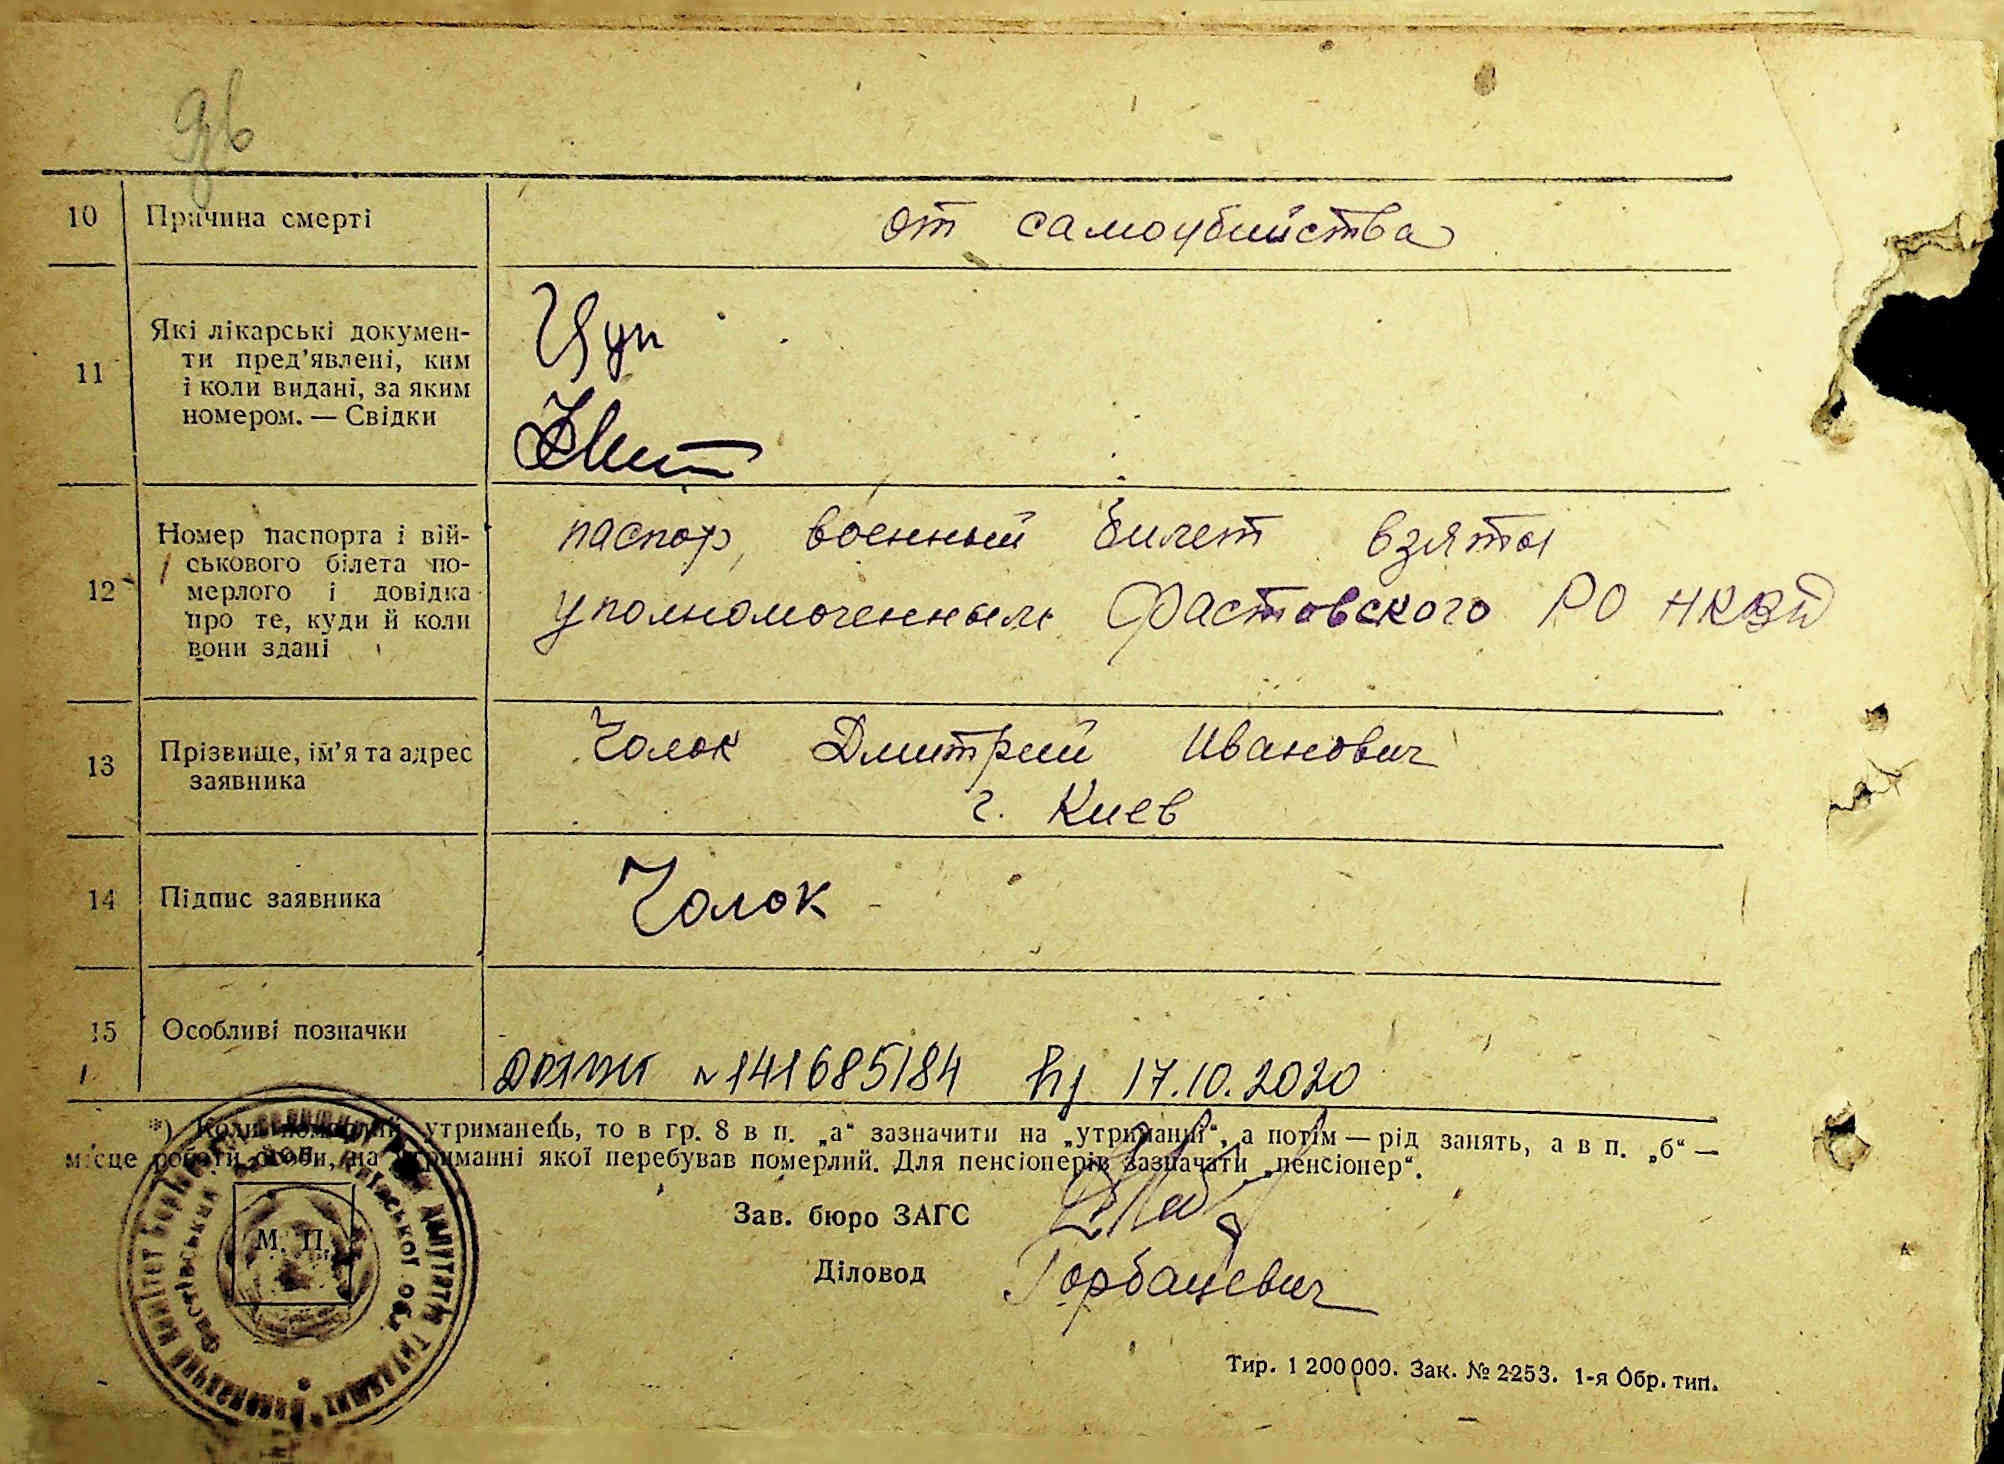 10 Причина смерті от самоубийства
11 Які лікарські докумен-
ти пред'явлені, ким
і коли видані, за яким
номером. — Свідки
12 Номер паспорта і вій-
ськового білета по-
мерлого і довідка
про те, куди й коли
вони здані
паспор, военный билет взяты
уполномоченным Фастовского РО НКВД
13 Прізвище, ім'я та адрес
заявника
Чолок Дмитрий Иванович
г. Киев
14 Підпис заявника Чолок
15 Особливі позначки
ДРАЦСГ №141685184 від 17.10.2020
*) Коли померлий утриманець, то в гр. 8 в п. „а“ зазначити на „утриманні“, а потім — рід занять, а в п. „б“ —
місце роботи особи, на утриманні якої перебував померлий. Для пенсіонерів зазначати „пенсіонер“.
Зав. бюро ЗАГС
М. П.
Діловод Горбацевич
Тир. 1 200 000. Зак. № 2253. 1-я Обр. тип.